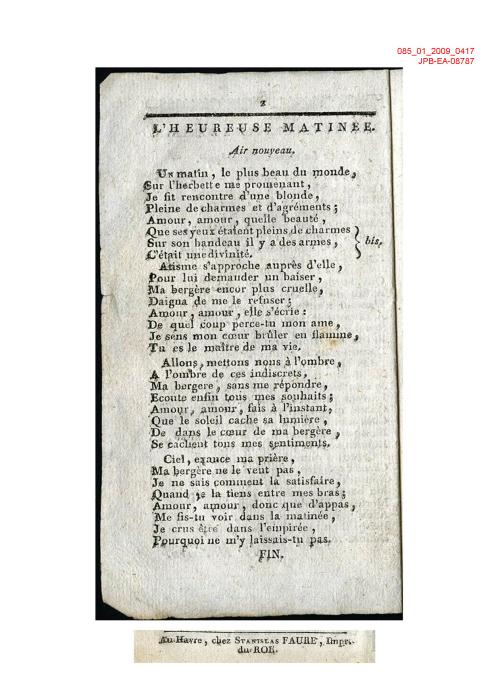 085_01_2009_0417
JPB-EA-08787
2
L'HEUREUSE MATINEE.
Air nouveau.
UN matin, le plus beau du monde,
Sur l'herbette me promenant,
Je fit rencontre d'une blonde,
Pleine de charmes et d'agréments;
Amour, amour, quelle beauté,
Que ses yeux étaient pleins de charmes
Sur son bandeau il y a des armes,
C'était une divinité.
bis.
Atisme s'approche auprès d'elle,
Pour lui demander un baiser,
Ma bergère encor plus cruelle,
Daigna de me le refuser;
Amour, amour, elle s'écrie:
De quel coup perce-tu mon ame,
Je sens mon cœur brûler en flamme,
Tu es le maître de ma vie.
Allons, mettons nous à l'ombre,
A l'ombre de ces indiscrets,
Ma bergere, sans me répondre,
Ecoute enfin tous mes souhaits;
Amour, amour, fais à l'instant,
Que le soleil cache sa lumière,
De dans le cœur de ma bergère,
Se cachent tous mes sentiments.
Ciel, exauce ma prière,
Ma bergère ne le veut pas,
Je ne sais comment la satisfaire,
Quand je la tiens entre mes bras;
Amour, amour, donc que d'appas,
Me fis-tu voir dans la matinée,
Je crus être dans l'empirée,
Pourquoi ne m'y laissais-tu pas.
FIN.
Au Havre, chez STANISLAS FAURE, Impr.
du ROI.